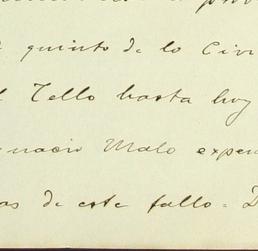 quinto de lo Civi
Tello hasta hoy
nacio Malo expen
as de este fallo = D